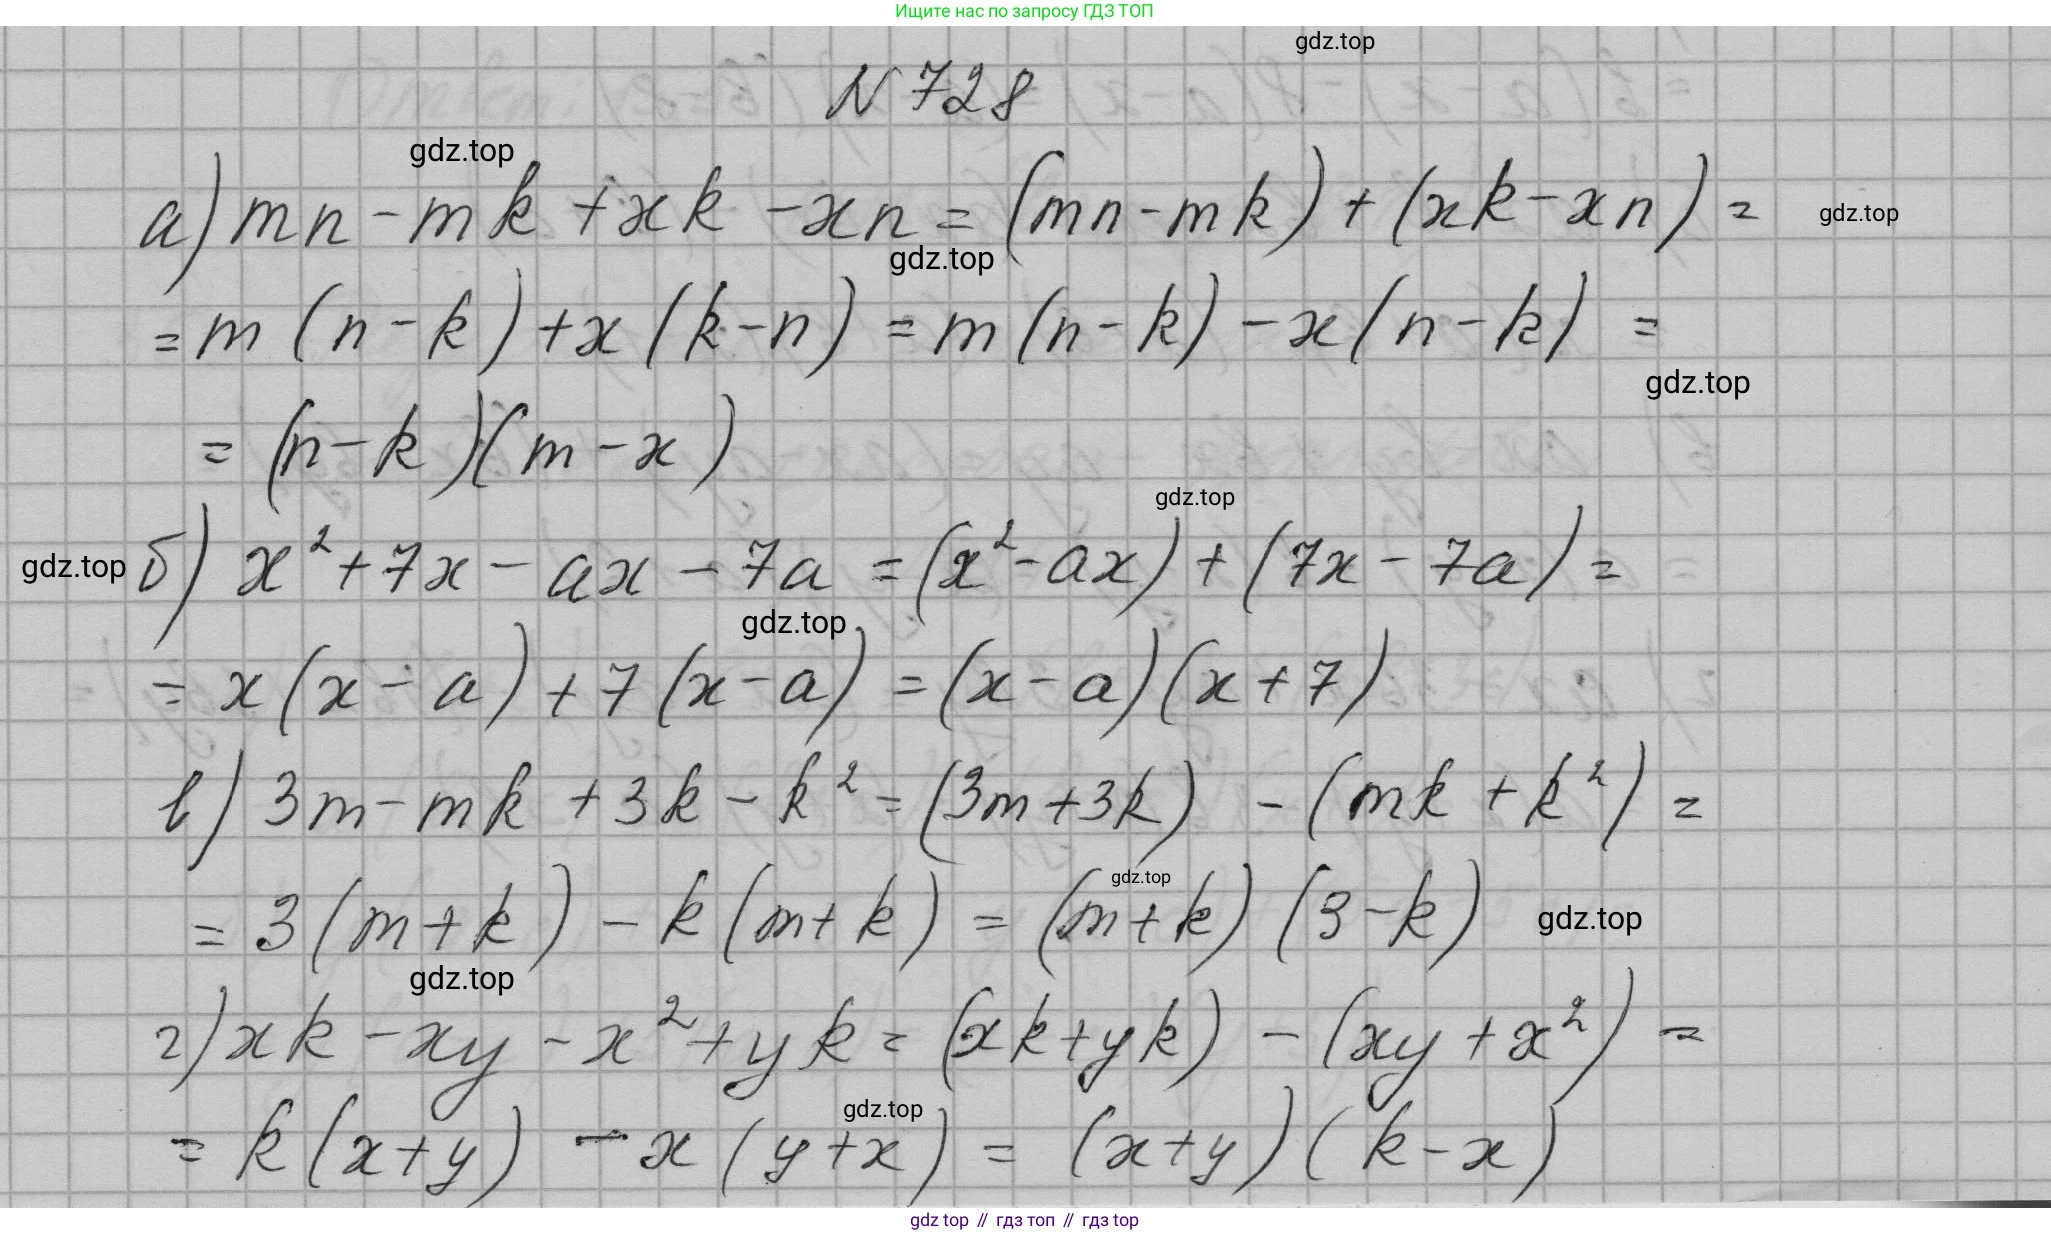 Ищите нас по запросу ГДЗ ТОП
gdz.top
N 728
gdz.top
а) mn - mk + xk - xn = (mn - mk) + (xk - xn) =
gdz.top
gdz.top
= m(n - k) + x(k - n) = m(n - k) - x(n - k) =
gdz.top
= (n - k)(m - x)
gdz.top
gdz.top
б) x² + 7x - ax - 7a = (x² - ax) + (7x - 7a) =
gdz.top
= x(x - a) + 7(x - a) = (x - a)(x + 7)
в) 3m - mk + 3k - k² = (3m + 3k) - (mk + k²) =
gdz.top
= 3(m + k) - k(m + k) = (m + k)(3 - k)
gdz.top
gdz.top
г) xk - xy - x² + yk = (xk + yk) - (xy + x²) =
gdz.top
= k(x + y) - x(y + x) = (x + y)(k - x)
gdz top // гдз топ // gdz top